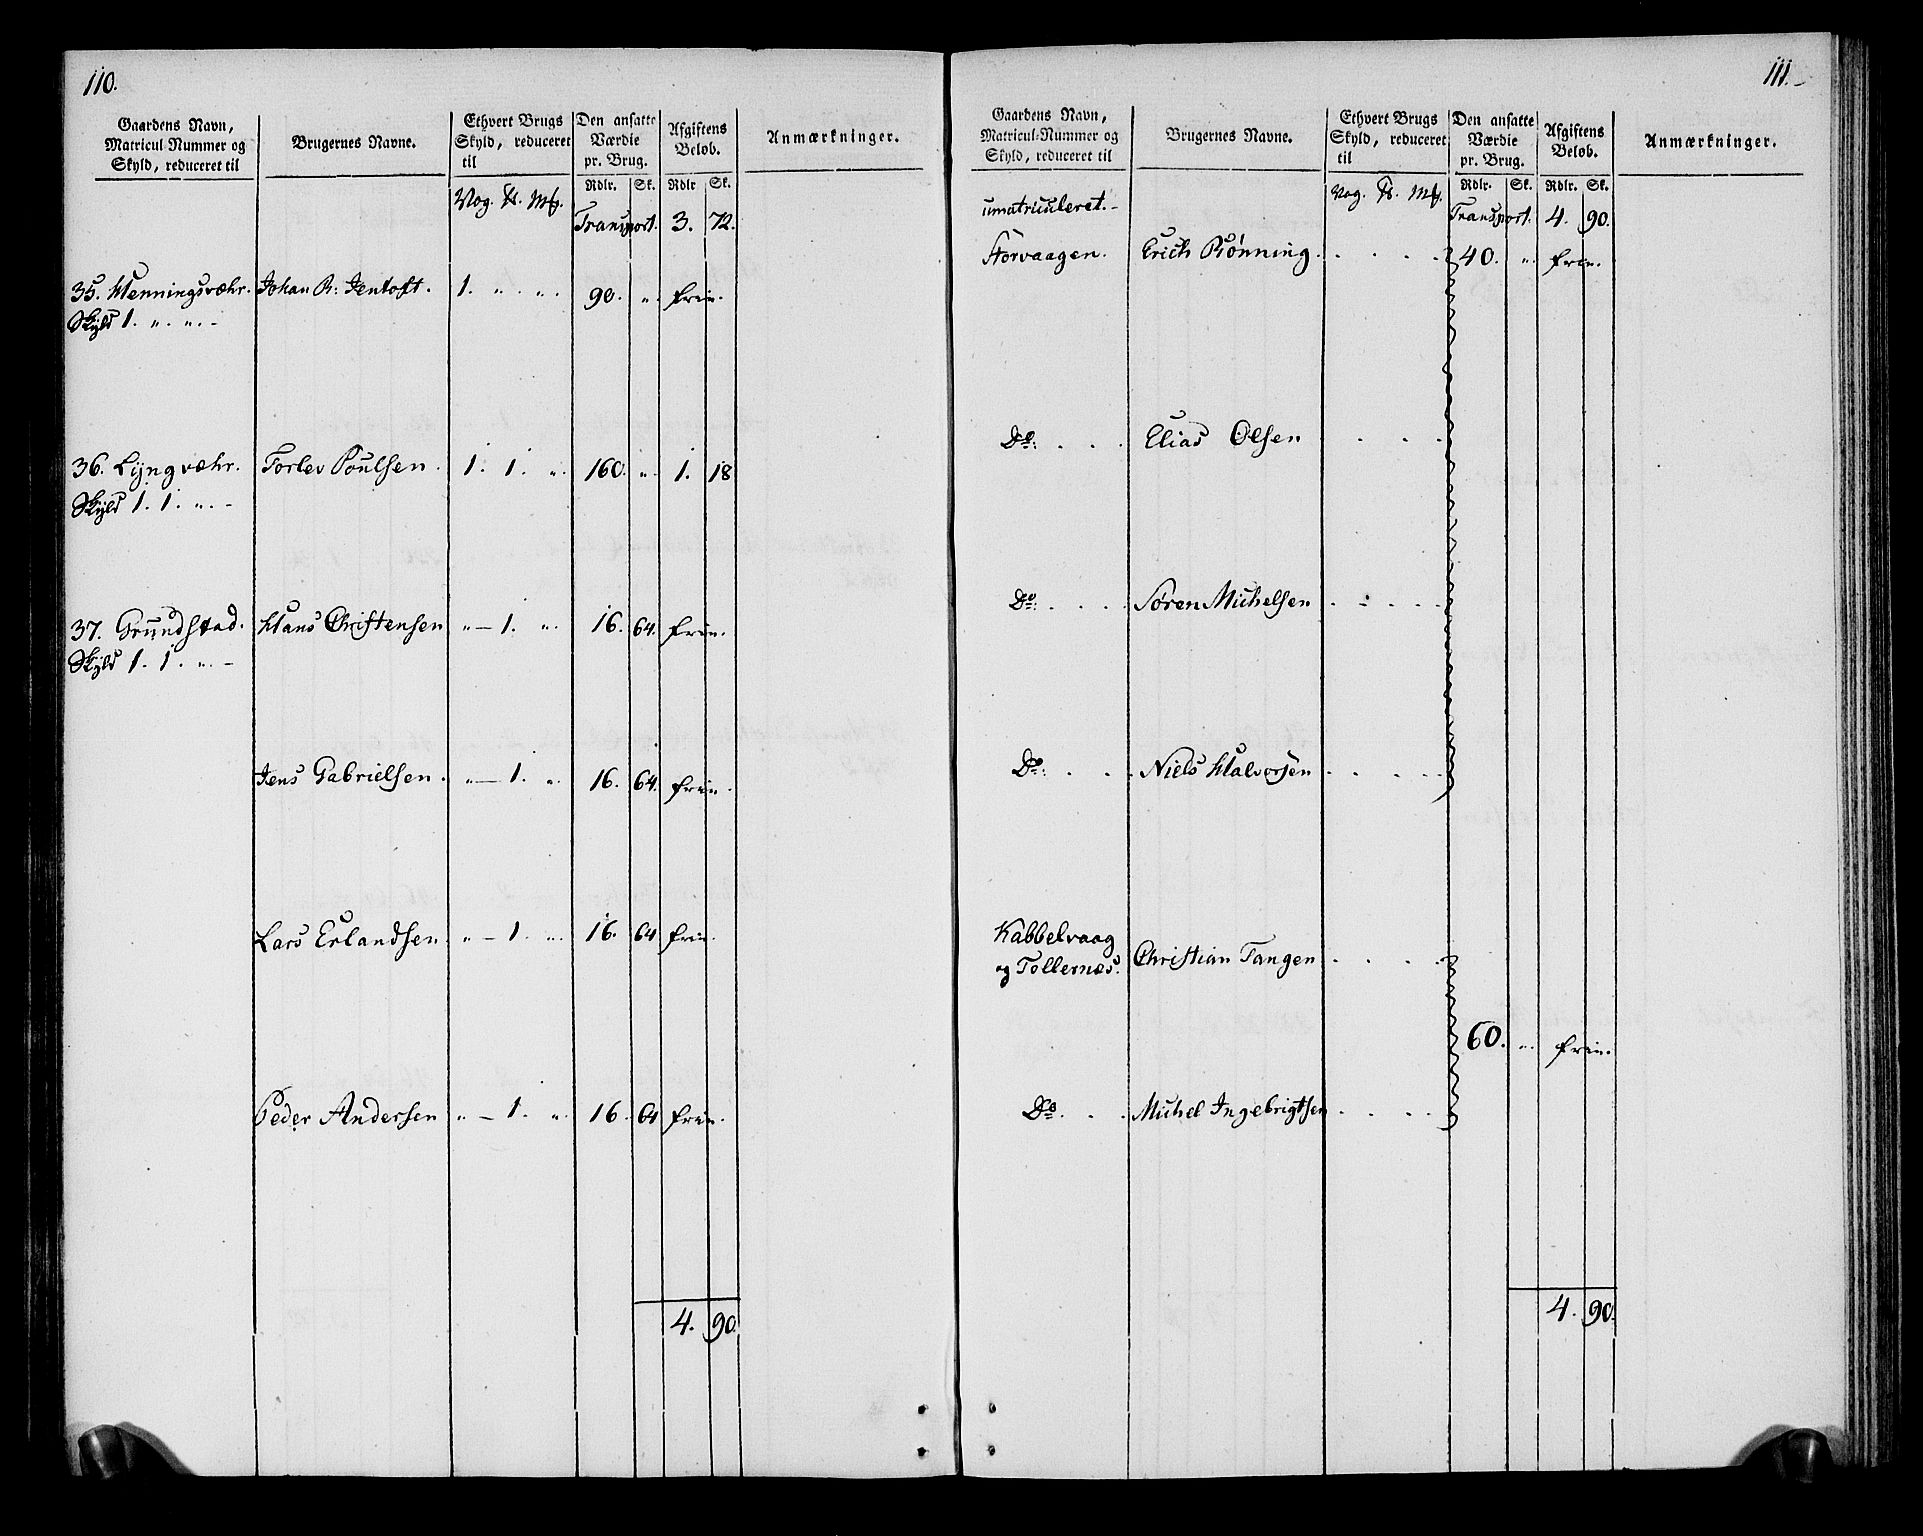 110.
Gaardens Navn, Matricul-Nummer og Skyld, reduceret til
Brugernes Navne.
Ethvert Brugs Skyld, reduceret til
Den ansatte Værdie pr. Brug.
Afgiftens Beløb.
Anmærkninger.
Rdlr. Sk. Rdlr Sk.
Vog. ℔. Mk.
Transport. 3. 72.
35. Henningsvæhr. Johan R. Jentoft. 1. „. „. 90. „. frie.
Skyld 1. „. „. –
36. Lyngvæhr. Torlev Poulsen. 1. 1. „. 160. „. 1. 18
Skyld 1. 1. „. –
37. Grundstad. Hans Christensen „ – 1. „. 16. 64. frie.
Skyld 1. 1. „. –
Jens Gabrielsen. „ – 1. „. 16. 64. frie.
Lars Erlandsen. „ – 1. „. 16. 64 frie.
Peder Andersen „ – 1. „. 16. 64 frie.
4. 90.
111.
Gaardens Navn, Matricul-Nummer og Skyld, reduceret til
Brugernes Navne.
Ethvert Brugs Skyld, reduceret til
Den ansatte Værdie pr. Brug.
Afgiftens Beløb.
Anmærkninger.
Rdlr. Sk. Rdlr. Sk.
Vog. ℔. Mk.
umatriculeret. –
Transport. 4. 90.
Storvaagen. Erich Rønning. . . . . 40. „. frie.
Do. . . . Elias Olsen . . . .
Do. . . . Søren Michelsen . . . .
Do. . . . Niels Halvorsen . . . .
Kabbelvaag
og Tollernæs. Christian Tangen . . . .
60. „. frie.
Do. . . . Michel Ingebrigtsen . . . .
4. 90.